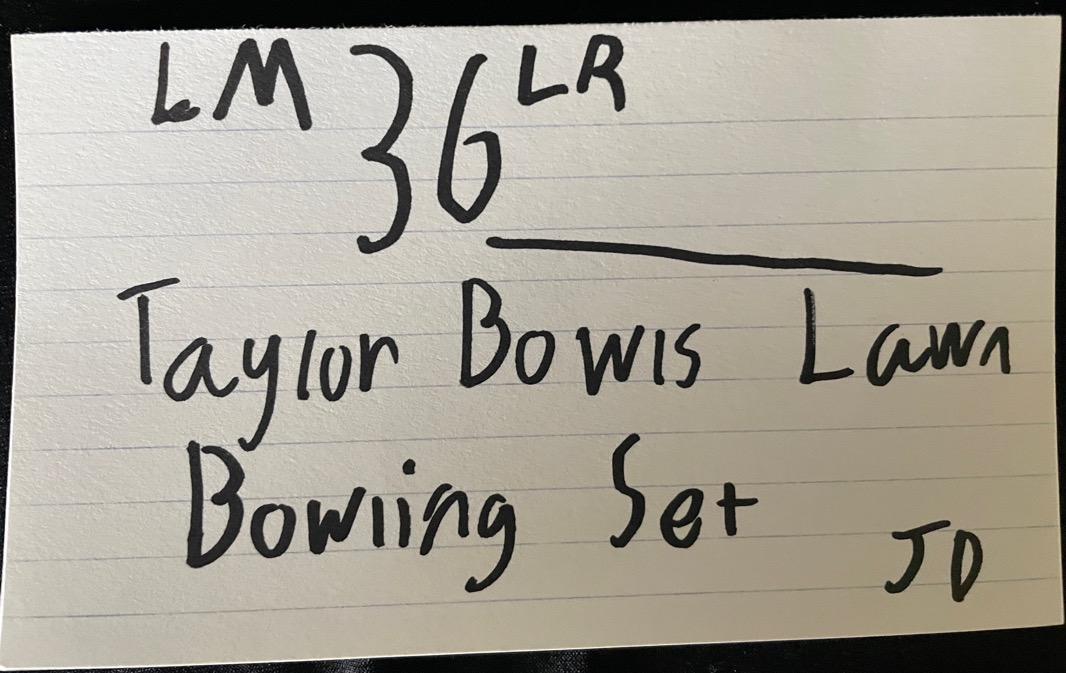 LM 36 LR
Taylor Bowls Lawn
Bowling Set
JD